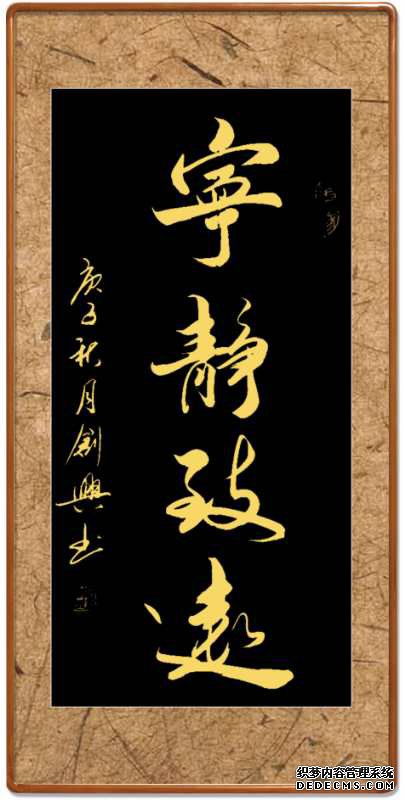 寧靜致遠
庚子秋月創興书
织梦内容管理系统
DEDECMS.COM